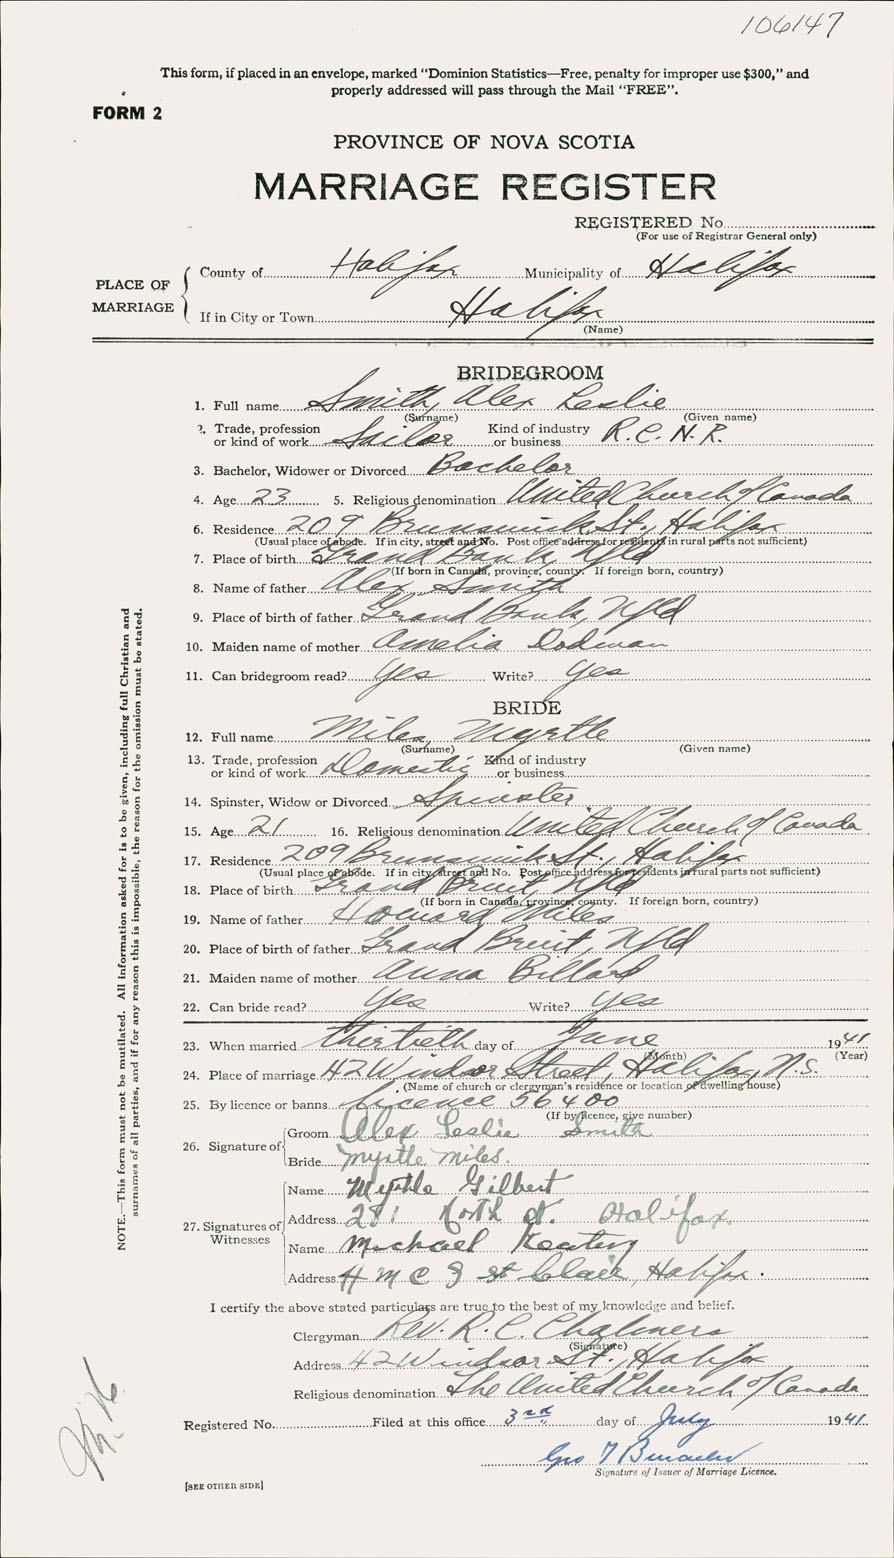 106147
This form, if placed in an envelope, marked "Dominion Statistics—Free, penalty for improper use $300," and
properly addressed will pass through the Mail "FREE".
FORM 2
PROVINCE OF NOVA SCOTIA
MARRIAGE REGISTER
REGISTERED No.
(For use of Registrar General only)
PLACE OF MARRIAGE
County of Halifax Municipality of Halifax
If in City or Town Halifax
(Name)
BRIDEGROOM
1. Full name Smith, Alex Leslie
(Surname) (Given name)
2. Trade, profession or kind of work Sailor Kind of industry or business R.C.N.R.
3. Bachelor, Widower or Divorced Bachelor
4. Age 23 5. Religious denomination United Church of Canada
6. Residence 209 Brunswick St., Halifax
(Usual place of abode. If in city, street and No. Post office address for residents in rural parts not sufficient)
7. Place of birth Grand Bank, Nfld
(If born in Canada, province, county. If foreign born, country)
8. Name of father Alex Smith
9. Place of birth of father Grand Bank, Nfld
10. Maiden name of mother Amelia Dodman
11. Can bridegroom read? Yes Write? Yes
BRIDE
12. Full name Miles, Myrtle
(Surname) (Given name)
13. Trade, profession or kind of work Domestic Kind of industry or business
14. Spinster, Widow or Divorced Spinster
15. Age 21 16. Religious denomination United Church of Canada
17. Residence 209 Brunswick St., Halifax
(Usual place of abode. If in city, street and No. Post office address for residents in rural parts not sufficient)
18. Place of birth Grand Bruit, Nfld
(If born in Canada, province, county. If foreign born, country)
19. Name of father Howard Miles
20. Place of birth of father Grand Bruit, Nfld
21. Maiden name of mother Anna Billard
22. Can bride read? Yes Write? Yes
23. When married thirtieth day of June 1941
(Month) (Year)
24. Place of marriage 42 Windsor Street, Halifax, N.S.
(Name of church or clergyman's residence or location of dwelling house)
25. By licence or banns Licence 56400
(If by licence, give number)
26. Signature of
Groom Alex Leslie Smith
Bride Myrtle Miles.
27. Signatures of Witnesses
Name Myrtle Gilbert
Address 281 North St. Halifax.
Name Michael Keating
Address H M C S St Clair, Halifax.
I certify the above stated particulars are true to the best of my knowledge and belief.
Clergyman Rev. R. C. Chalmers
(Signature)
Address 42 Windsor St., Halifax
Religious denomination The United Church of Canada
Registered No. Filed at this office 3rd day of July 1941
Geo
Signature of Issuer of Marriage Licence.
[SEE OTHER SIDE]
NOTE.—This form must not be mutilated. All information asked for is to be given, including full Christian and
surnames of all parties, and if for any reason this is impossible, the reason for the omission must be stated.